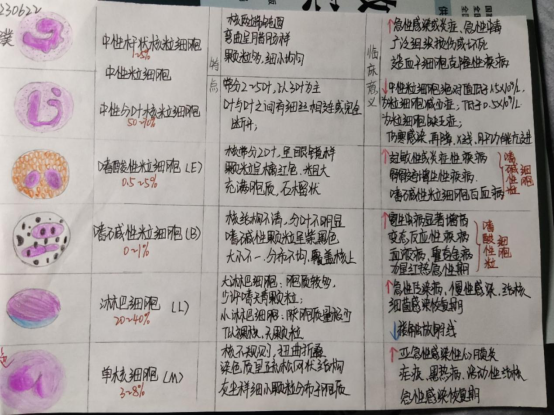 230622
中性杆状核粒细胞
1~5%
中性粒细胞
中性分叶核粒细胞
50~70%
特点
弯曲呈月牙马样
颗粒多,细小均匀
带分2~5叶,以3叶为主
叶与叶之间有细丝相连或完全
断开;
临床意义
↑急性感染或炎症,急性中毒
广泛组织损伤或坏死
↓中性粒细胞绝对值低于1.5×10⁹/L
为粒细胞减少症,低于0.5×10⁹/L
为粒细胞缺乏症;
伤寒感染,再障,X线,脾功能亢进
嗜酸性粒细胞(E)
0.5~5%
核常分2叶,呈眼镜样
颗粒呈橘红色,粗大
充满胞质,石榴状
↑过敏性或炎症性疾病
嗜酸性粒细胞白血病
嗜碱性粒细胞
嗜碱性粒细胞(B)
0~1%
核结构不清,分叶不明显
嗜碱性颗粒呈紫黑色
大小不一,分布不均,覆盖核上
↑寄生虫病显著增高
变态反应性疾病
血液病
猩红热急性期
嗜酸性粒细胞
淋巴细胞(L)
20~40%
大淋巴细胞:胞质较多,
少许嗜天青颗粒;
小淋巴细胞:胞质量较少
无颗粒
↑急性传染病,慢性感染,结核
细菌感染恢复期
↓接触放射线
单核细胞(M)
3~8%
核不规则,扭曲折叠
染色质呈疏松网状结构
灰尘样细小颗粒分布于胞质
↑亚急性感染性心内膜炎
疟疾,黑热病,活动性结核
急性感染恢复期